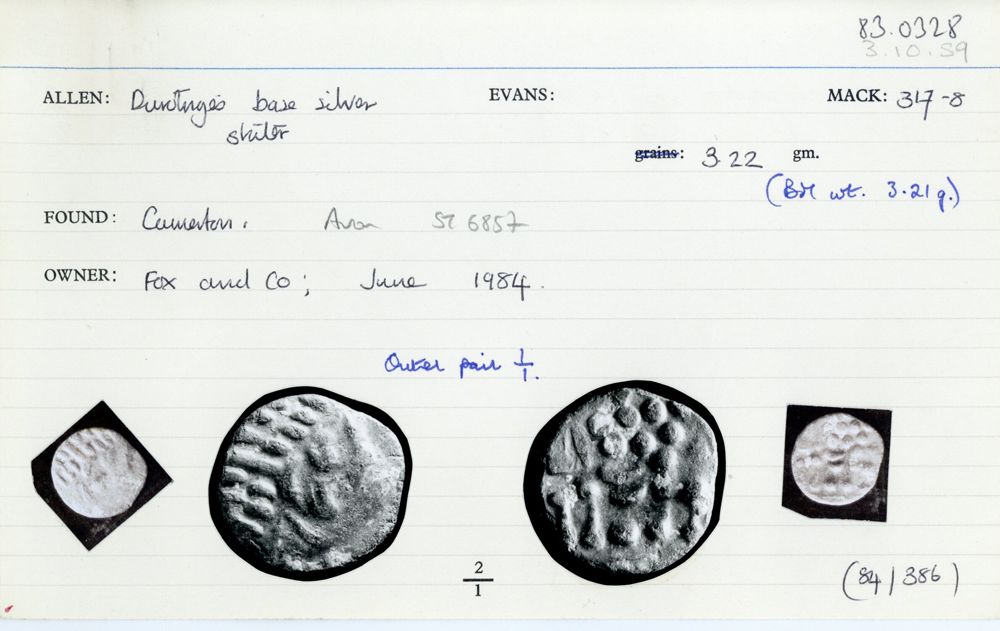 83.0328
3.10.59
ALLEN: Durotriges base silver EVANS: MACK: 317-8
stater
grains: 3.22 gm.
(BM wt. 3.21g.)
FOUND: Camerton. Avon ST 6857
OWNER: Fox and Co; June 1984.
Outer pair 1/1.
2/1
(84/386)